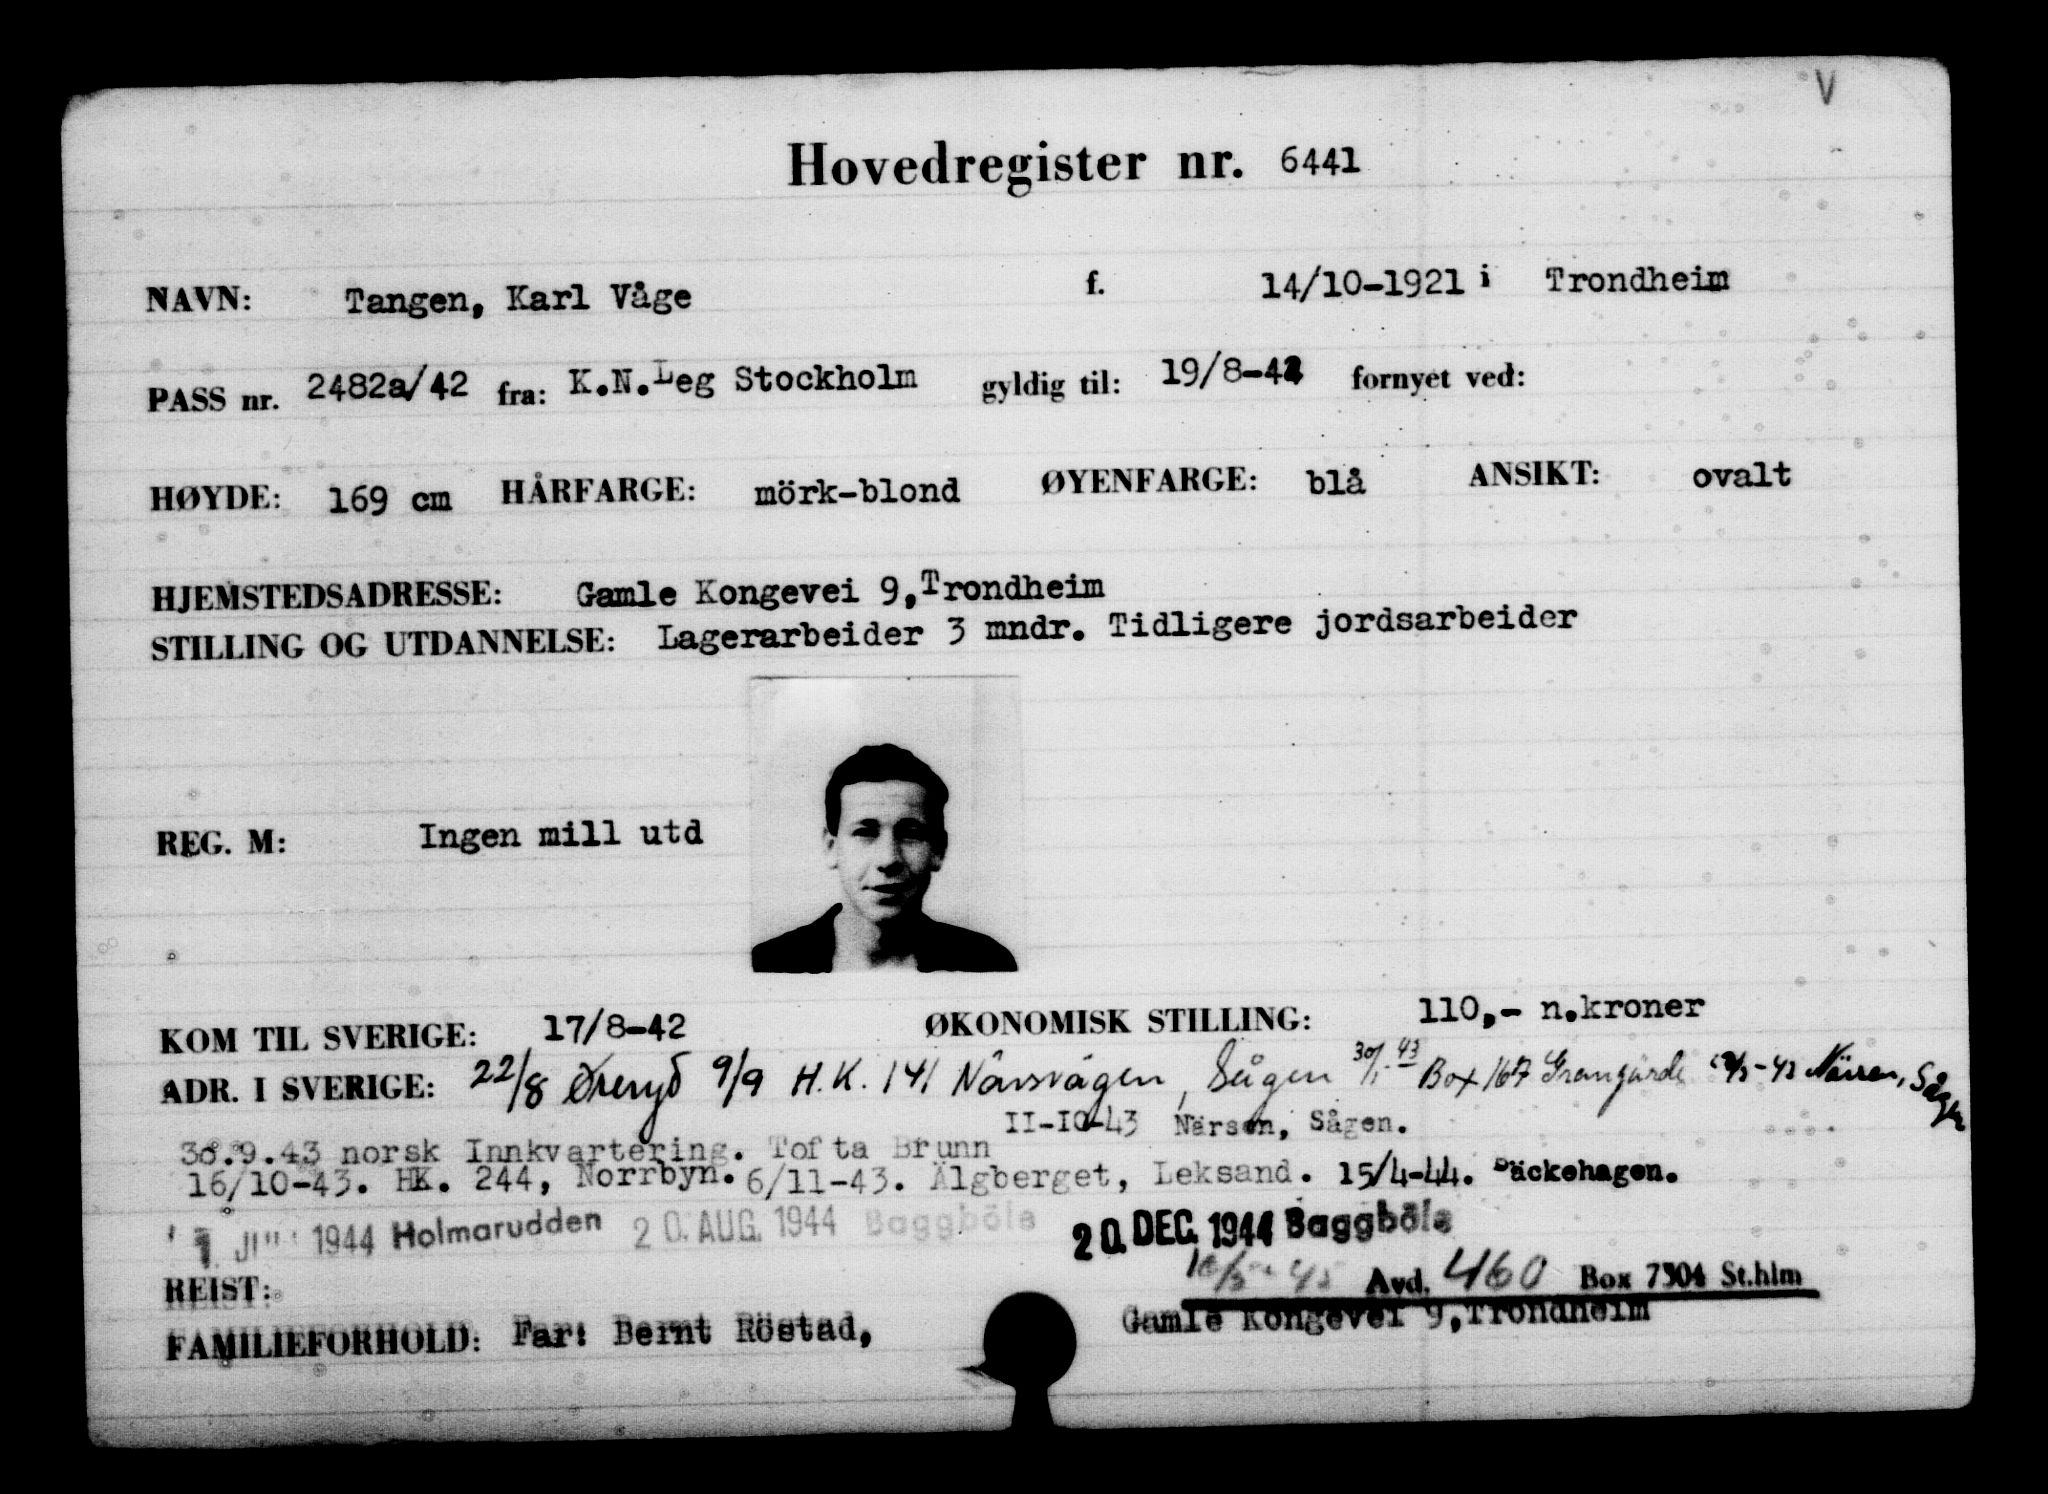 V
Hovedregister nr. 6441
NAVN: Tangen, Karl Våge f. 14/10-1921 i Trondheim
PASS nr. 2482a/42 fra: K.N.Leg Stockholm gyldig til: 19/8-42 fornyet ved:
HØYDE: 169 cm HÅRFARGE: mörk-blond ØYENFARGE: blå ANSIKT: ovalt
HJEMSTEDSADRESSE: Gamle Kongevei 9,Trondheim
STILLING OG UTDANNELSE: Lagerarbeider 3 mndr. Tidligere jordsarbeider
REG. M: Ingen mill utd
KOM TIL SVERIGE: 17/8-42 ØKONOMISK STILLING: 110,- n.kroner
ADR. I SVERIGE: 22/8 Øreryd 9/9 H.K. 141 Närsvägen, Sågen 30/1-43 Box 167 Grangärde -43 Närsen, Sågen
II-IO-43 Närsen, Sågen.
30.9.43 norsk Innkvartering. Tofta Brunn
16/10-43. HK. 244, Norrbyn. 6/11-43. Älgberget, Leksand. 15/4-44. Bäckehagen.
1944 Holmarudden 20. AUG. 1944 Baggböle 20. DEC. 1944 Baggböle
REIST: 45 Avd. 460 Box 7304 St.hlm
FAMILIEFORHOLD: Far: Bernt Röstad, Gamle Kongevei 9,Trondheim